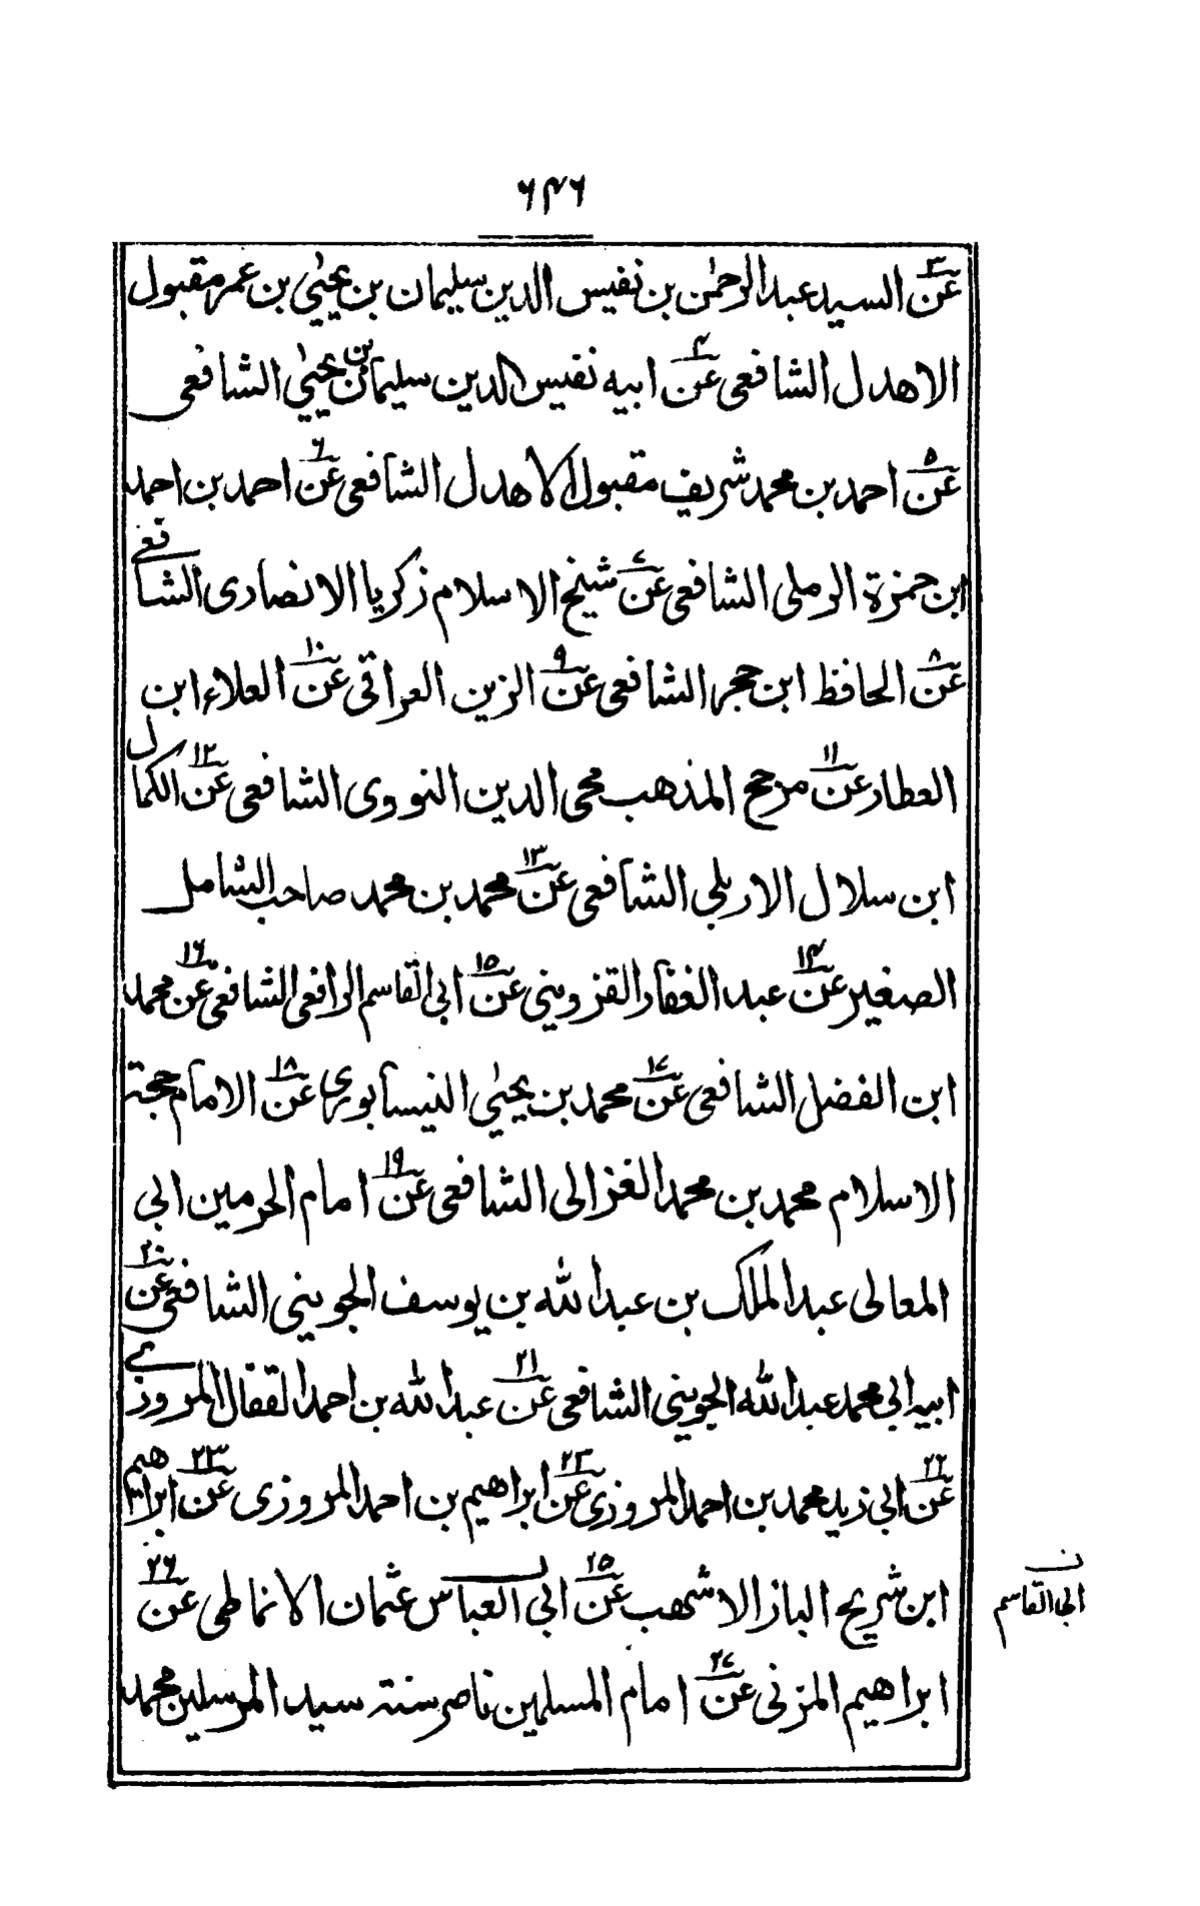 ۶۴۶
عن۳ السيد عبد الرحمٰن بن نفيس الدين سليمان بن يحيٰي بن عمر مقبول
الاهدل الشافعى عن۴ ابيه نفيس الدين سليمان بن يحيٰي الشافعى
عن۵ احمد بن محمد شريف مقبول الاهدل الشافعى عن۶ احمد بن احمد
ابن حمزة الرملى الشافعى عن۷ شيخ الاسلام زكريا الانصارى الشافعے
عن۸ الحافظ ابن حجر الشافعى عن۹ الزين العراقى عن۱۰ العلاء ابن
العطار عن۱۱ مرجح المذهب محى الدين النووى الشافعى عن۱۲ الكمال
ابن سلال الاربلى الشافعى عن۱۳ محمد بن محمد صاحب الشامل
الصغير عن۱۴ عبد الغفار القزوينى عن۱۵ ابى القاسم الرافعى الشافعى عن۱۶ محمد
ابن الفضل الشافعى عن۱۷ محمد بن يحيٰي النيسابورى عن۱۸ الامام حجة
الاسلام محمد بن محمد الغزالى الشافعى عن۱۹ امام الحرمين ابى
المعالى عبد الملك بن عبد الله بن يوسف الجوينى الشافعى عن۲۰
ابيه ابى محمد عبد الله الجوينى الشافعى عن۲۱ عبد الله بن احمد القفال المروزے
عن۲۲ ابى زيد محمد بن احمد المروزى عن۲۳ ابراهيم بن احمد المروزى عن۲۳ ابراهيم
ابن شريح الباز الاشهب عن۲۵ ابى العباس عثمان الانماطى عن۲۶
ن ابى القاسم
ابراهيم المزنى عن۲۷ امام المسلمين ناصر سنة سيد المرسلين محمد